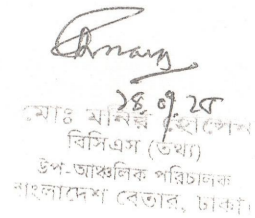 ১৪.৭.২৫
মোঃ মনির হোসেন
বিসিএস (তথ্য)
উপ-আঞ্চলিক পরিচালক
বাংলাদেশ বেতার, ঢাকা।